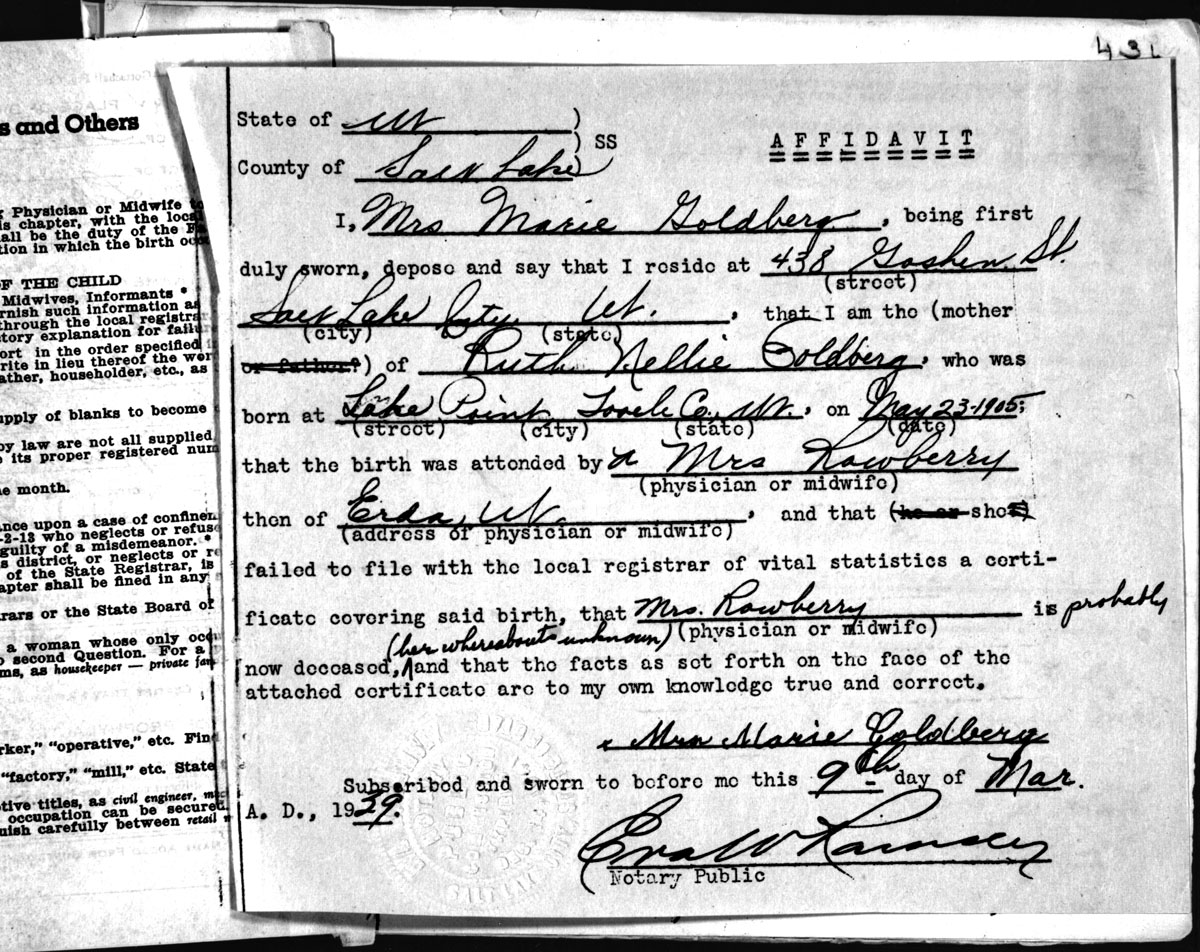 s and Others
Physician or Midwife to
is chapter, with the local
all be the duty of the
tion in which the birth
OF THE CHILD
Midwives, Informants *
rnish such information as
through the local registra
tory explanation for failu
ort in the order specified
rite in lieu thereof the wor
ather, householder, etc., as
upply of blanks to become
by law are not all supplied
its proper registered num
e month.
ance upon a case of confinem
-2-13 who neglects or refuse
guilty of a misdemeanor. *
s district, or neglects or re
of the State Registrar, is
apter shall be fined in any
rars or the State Board of
a woman whose only occu
second Question. For a
ms, as housekeeper — private fam
rker," "operative," etc. Find
"factory," "mill," etc. State
tive titles, as civil engineer,
occupation can be secured
uish carefully between retail
43
State of Ut )
) SS
County of Salt Lake )
A F F I D A V I T
I, Mrs Marie Goldberg, being first
duly sworn, depose and say that I reside at 438 Goshen St.
(street)
Salt Lake City Ut. , that I am the (mother
(city) (state)
or father?) of Ruth Nellie Goldberg, who was
born at Lake Point Tooele Co., Ut., on May 23-1905;
(street) (city) (state) (date)
that the birth was attended by a Mrs Rowberry
(physician or midwife)
then of Erda, Ut. , and that (he or she)
(address of physician or midwife)
failed to file with the local registrar of vital statistics a certi-
ficate covering said birth, that Mrs. Rowberry is probably
(her whereabouts unknown) (physician or midwife)
now deceased, and that the facts as set forth on the face of the
attached certificate are to my own knowledge true and correct.
Mrs Marie Goldberg
Subscribed and sworn to before me this 9th day of Mar.
A. D., 1939.
Eva W Ramsey
Notary Public